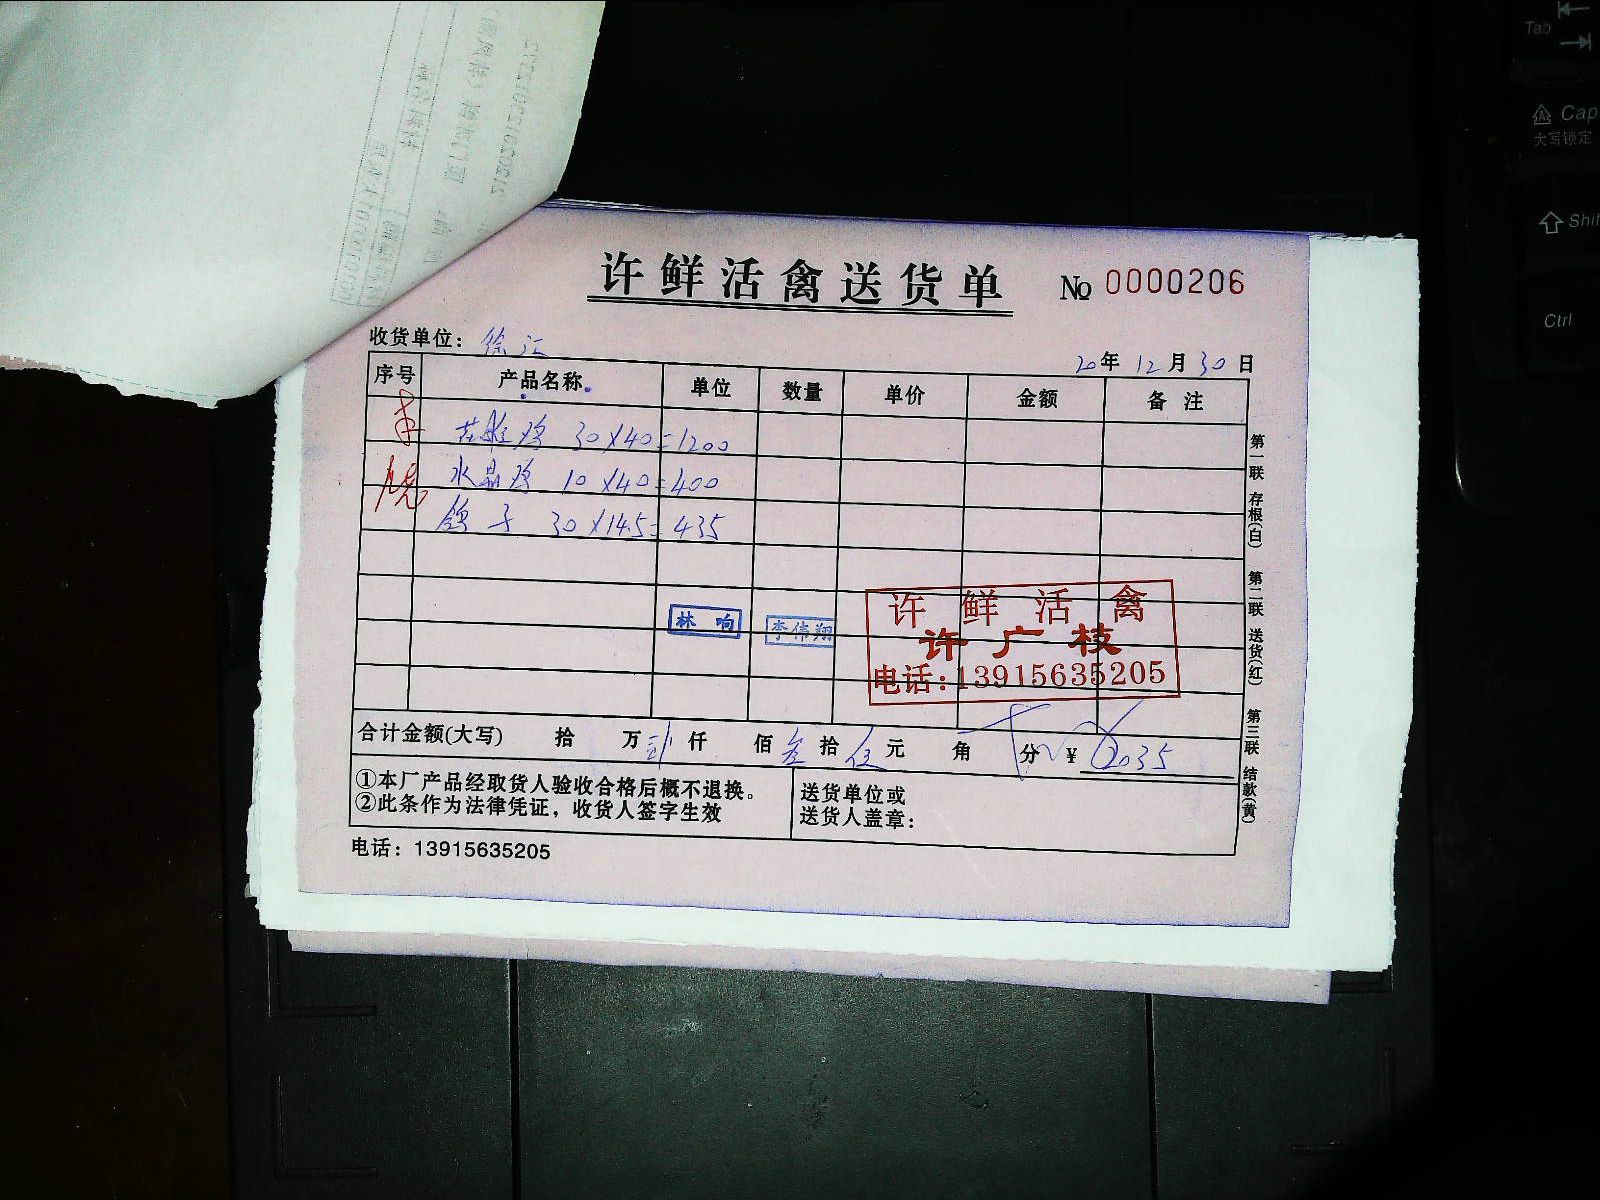 许鲜活禽送货单
№ 0000206
收货单位：徐汇
20年12月30日
序号 产品名称 单位 数量 单价 金额 备注
鸡 30×40=1200
水晶鸡 10×40=400
鸽子 30×14.5=435
林响
李伟翔
许鲜活禽
许广枝
电话:13915635205
合计金额(大写) 拾 万 贰 仟 佰 叁 拾 伍 元 角 分 ¥ 2035
①本厂产品经取货人验收合格后概不退换。
②此条作为法律凭证，收货人签字生效
送货单位或
送货人盖章：
电话：13915635205
第一联 存根(白) 第二联 送货(红) 第三联 结款(黄)
Tab
Cap
大写锁定
Shif
Ctrl